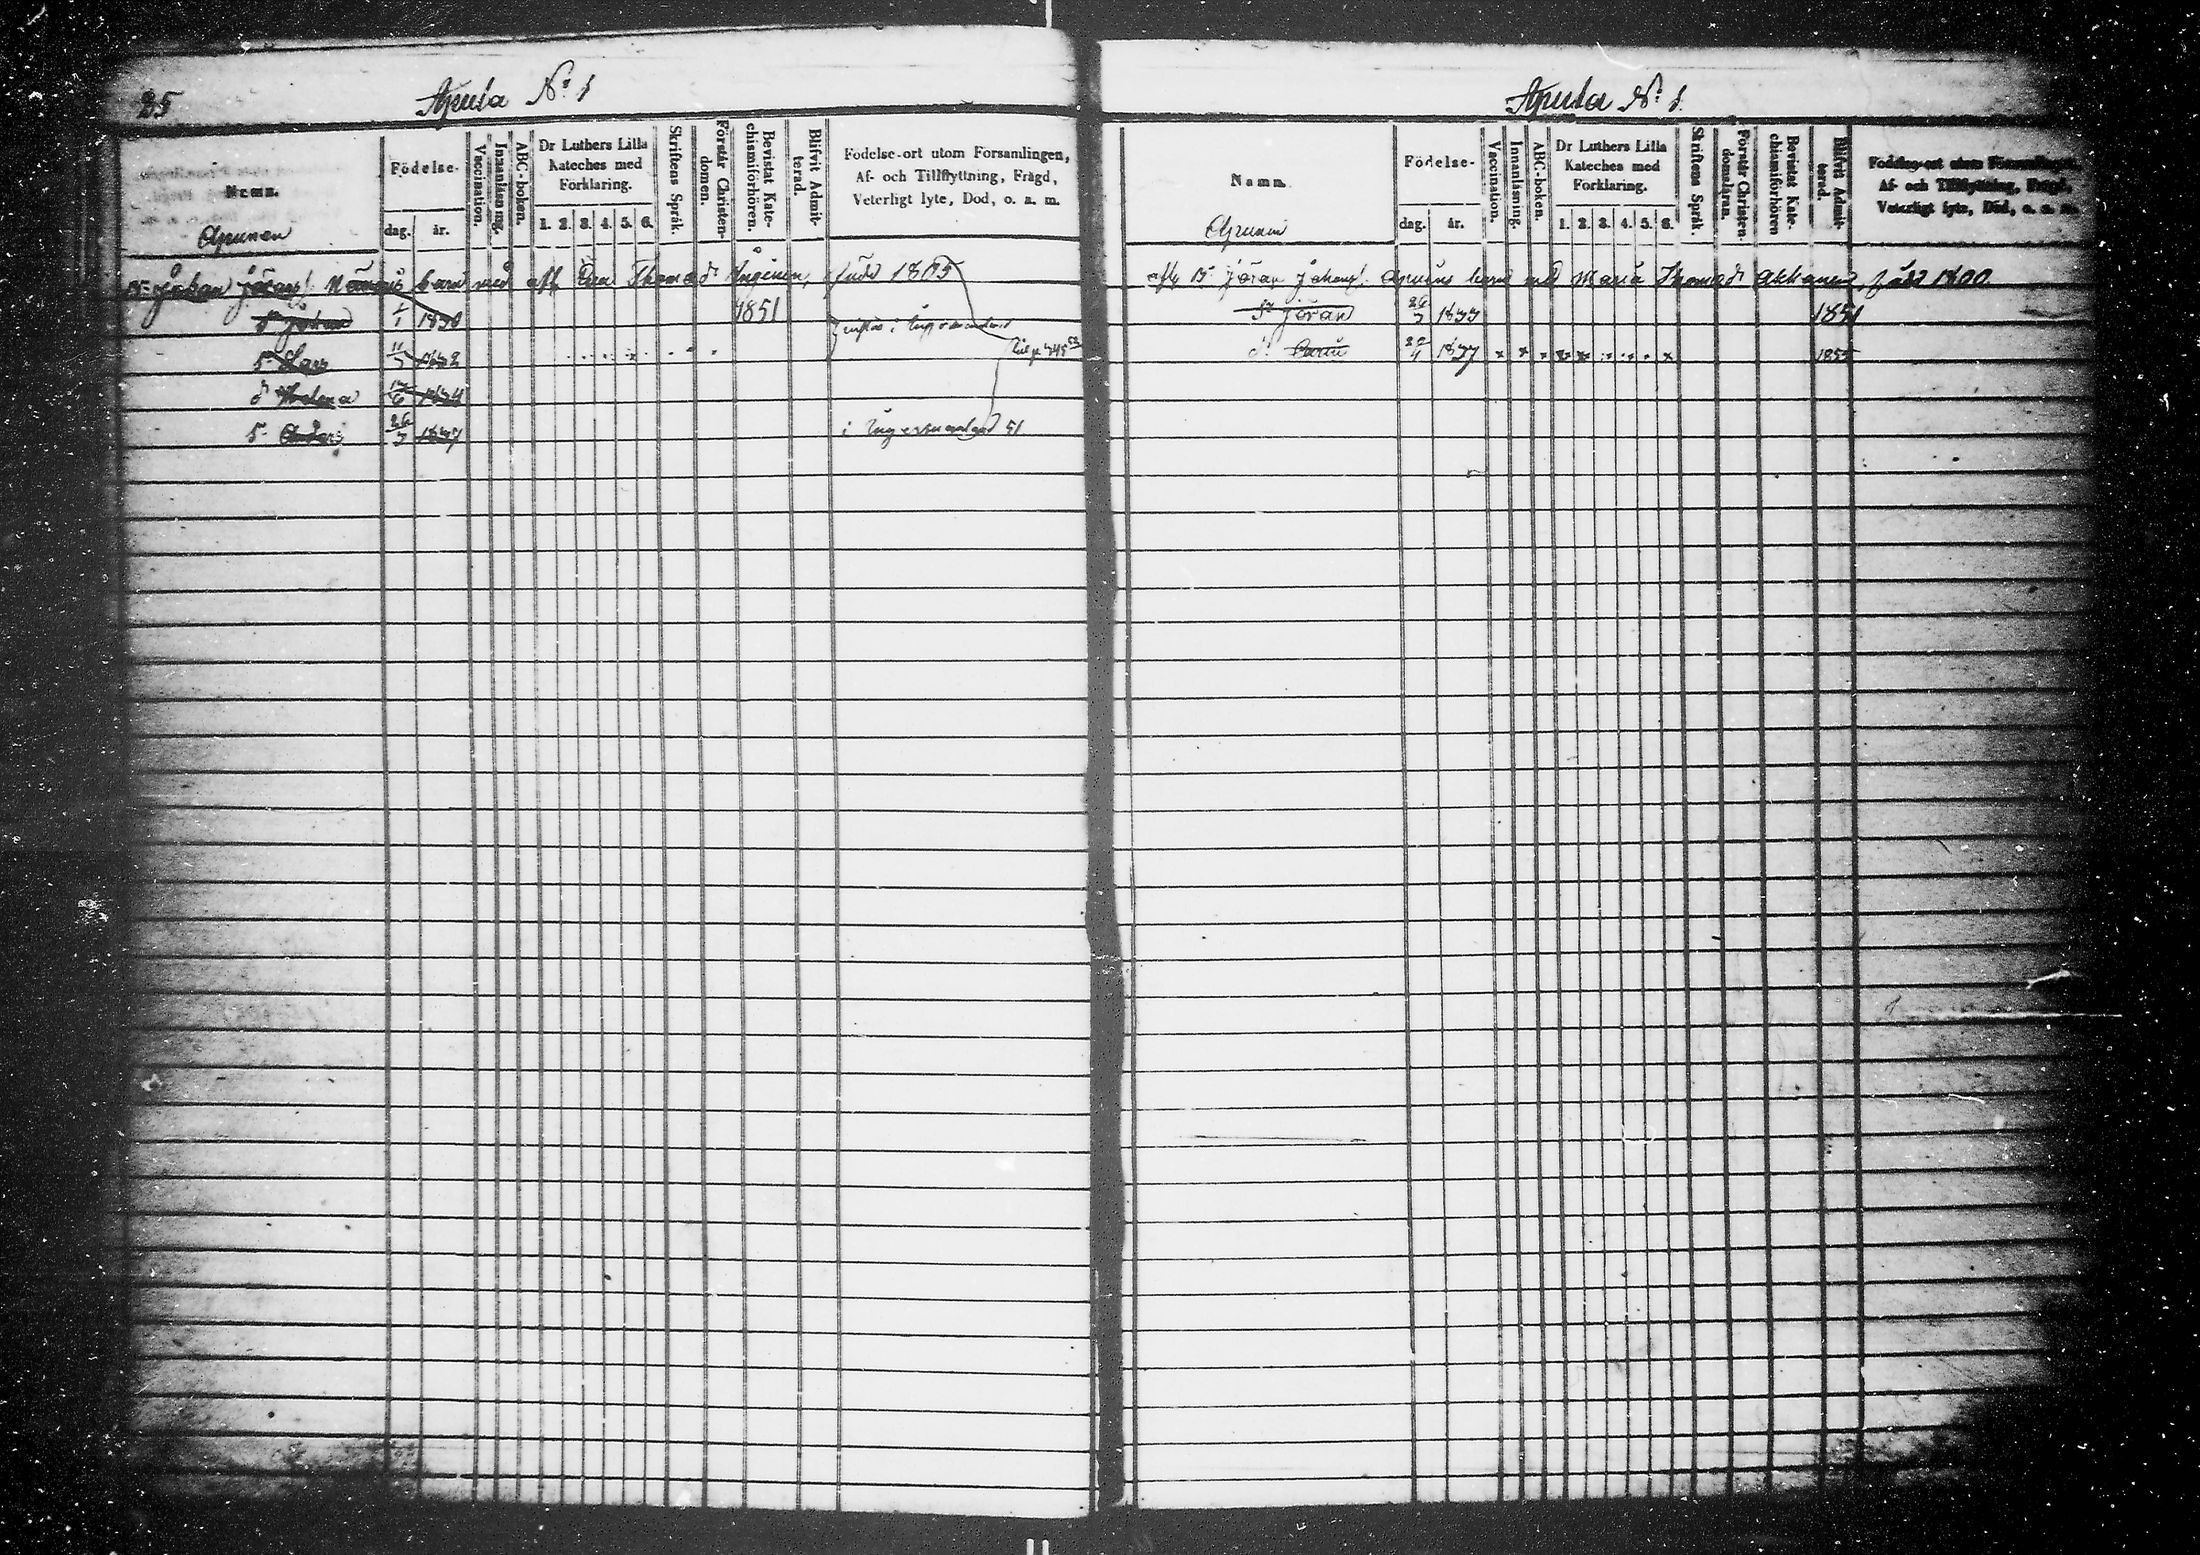 25
Apula No 1
Namn.
Födelse-
dag.
år.
Vaccination.
Innanläsning.
ABC-boken.
Dr Luthers Lilla
Kateches med
Förklaring.
1. 2. 3. 4. 5. 6.
Skriftens Språk.
Förstår Christen-
domen.
Bevistat Kate-
chismiförhören.
Blifvit Admit-
terad.
Födelse-ort utom Församlingen,
Af- och Tillflyttning, Frägd,
Veterligt lyte, Död, o. a. m.
Apunen
Johan Jörans barn med Thomæ dr Inginen, född 1805
S. Johan 1/1 1830 1851
S. Lars 11/3 1832
d Helena 1834
S. Anders 26/3 1837 i Ingermanland 51
Apula No 1.
Namn.
Födelse-
dag.
år.
Vaccination.
Innanläsning.
ABC-boken.
Dr Luthers Lilla
Kateches med
Förklaring.
1. 2. 3. 4. 5. 6.
Skriftens Språk.
Förstår Christen-
domsläran.
Bevistat Kate-
chismiförhören
Blifvit Admit-
terad.
Födelse-ort utom Församlingen,
Af- och Tillflyttning, Frägd,
Veterligt lyte, Död, o. a. m.
Apunen
Jöran Johans. Apunens barn med Maria Thomædr Akkanen, född 1800
Sn Jöran 26/3 1833 1851
d. 22/4 1837 1855